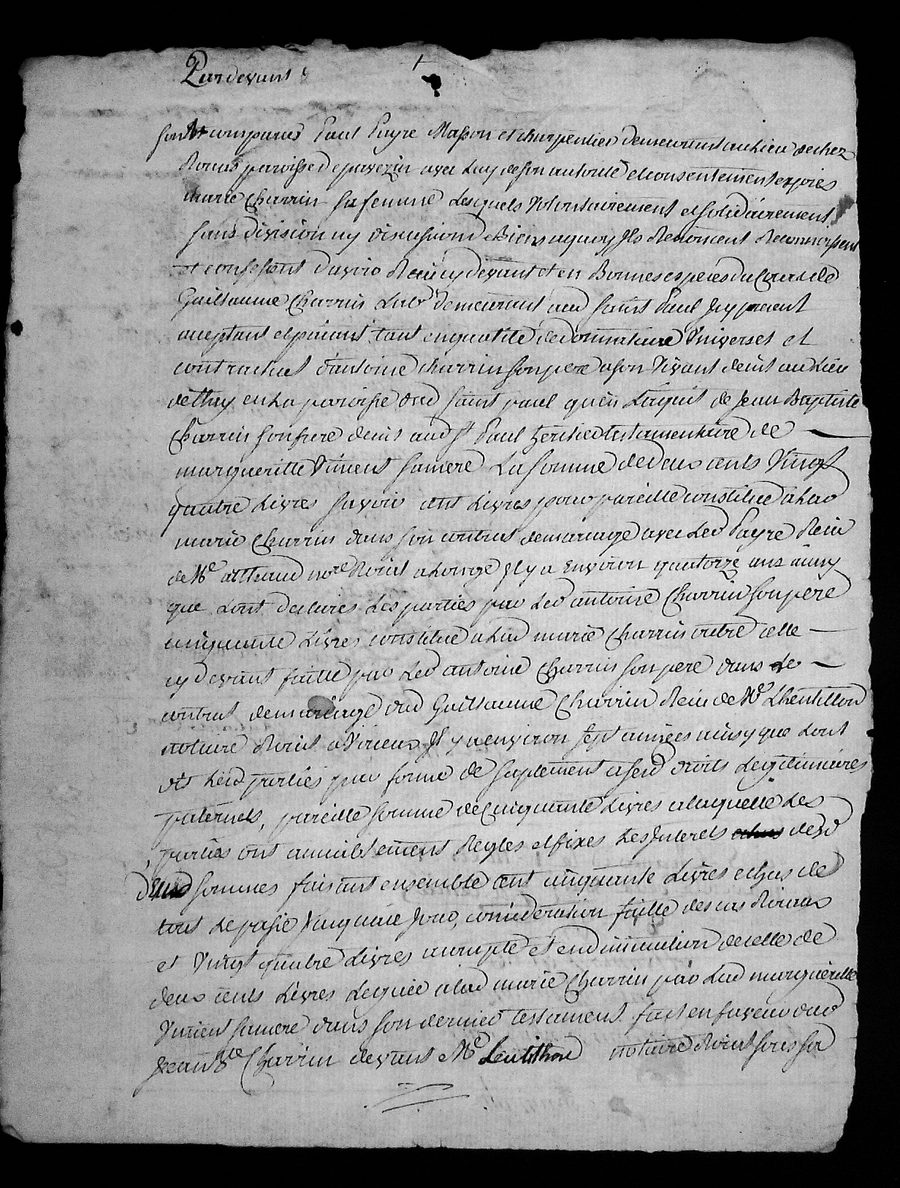 Pardevant
sont comparus Paul Payre Masson et charpentier demeurant au lieu de chez
paroisse de pavezin avec luy de son autorité et consentement expres
marie Charrin sa femme lesquels volontairement et solidairement
sans division ny discussion Biens a quoy Ils Renoncent Reconnoissent
et confessent d'avoir Receu cy devant et en Bonnes especes du Cours de
Guillaume Charrin Lab.r demeurant aud saint Paul Icy present
aceptant et païant tant en qualité de donnataire Universel et
contractuel d'antoine charrin son pere a son Vivant decedé au Lieu
de en La paroisse dud saint paul qu'en l'aquit de Jean Baptiste
Charrin son frere aud S.t Paul heritier testamentaire de
margueritte Vincent sa mere La somme de deux cents Vingt
quatre Livres savoir cent Livres pour pareille constitué a Lad
marie Charrin dans son contrat de mariage avec Led Payre Receu
de M.e no.re Roial a Longe Il y a environ quatorze ans ainsy
que l'ont declarés Les parties par Led antoine Charrin son pere
cinquante Livres constitué a Lad marie Charrin outre celle
cy devant faitte par Led antoine Charrin son pere dans Le
contrat de mariage dud Guillaume Charrin Receu de M.e Lhentillon
notaire Roial a Il y a environ sept années ainsy que l'ont
dit Lesd parties par forme de suplement a sesd droits Legitimaires
paternels, pareille somme de Cinquante Livres a laquelle Les
parties ont amiablement Regles et fixes Les Interets desd
sommes faisant ensemble cent cinquante Livres echus de
tout Le passé Jusqu'a ce Jour, consideration faitte des cas Roiaux
et Vingt quatre Livres a compte et en diminution de celle de
deux cents Livres Leguée a lad marie Charrin par Lad margueritte
Vincent sa mere dans son dernier testament fait en faveur dud
Jean B.te Charrin devant M.e notaire Roial sous sa